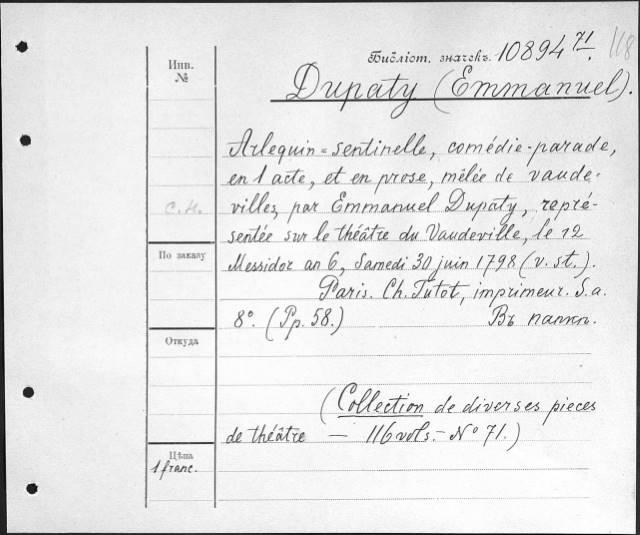 118
Библіот. значекъ. 10894 71.
Инв.
№
Dupaty (Emmanuel).
Arlequin=sentinelle, comédie-parade,
en 1 acte, et en prose, mêlée de vaude-
villes, par Emmanuel Dupaty, repré-
С.И.
sentée sur le théâtre du Vaudeville, le 12
По заказу
Messidor an 6, Samedi 30 juin 1798 (v. st.).
Paris. Ch. Tutot, imprimeur. S. a.
8°. (Pp. 58.) Въ папкѣ.
Откуда
(Collection de diverses pieces
de théâtre — 116 vols. — № 71.)
Цѣна
1 franc.